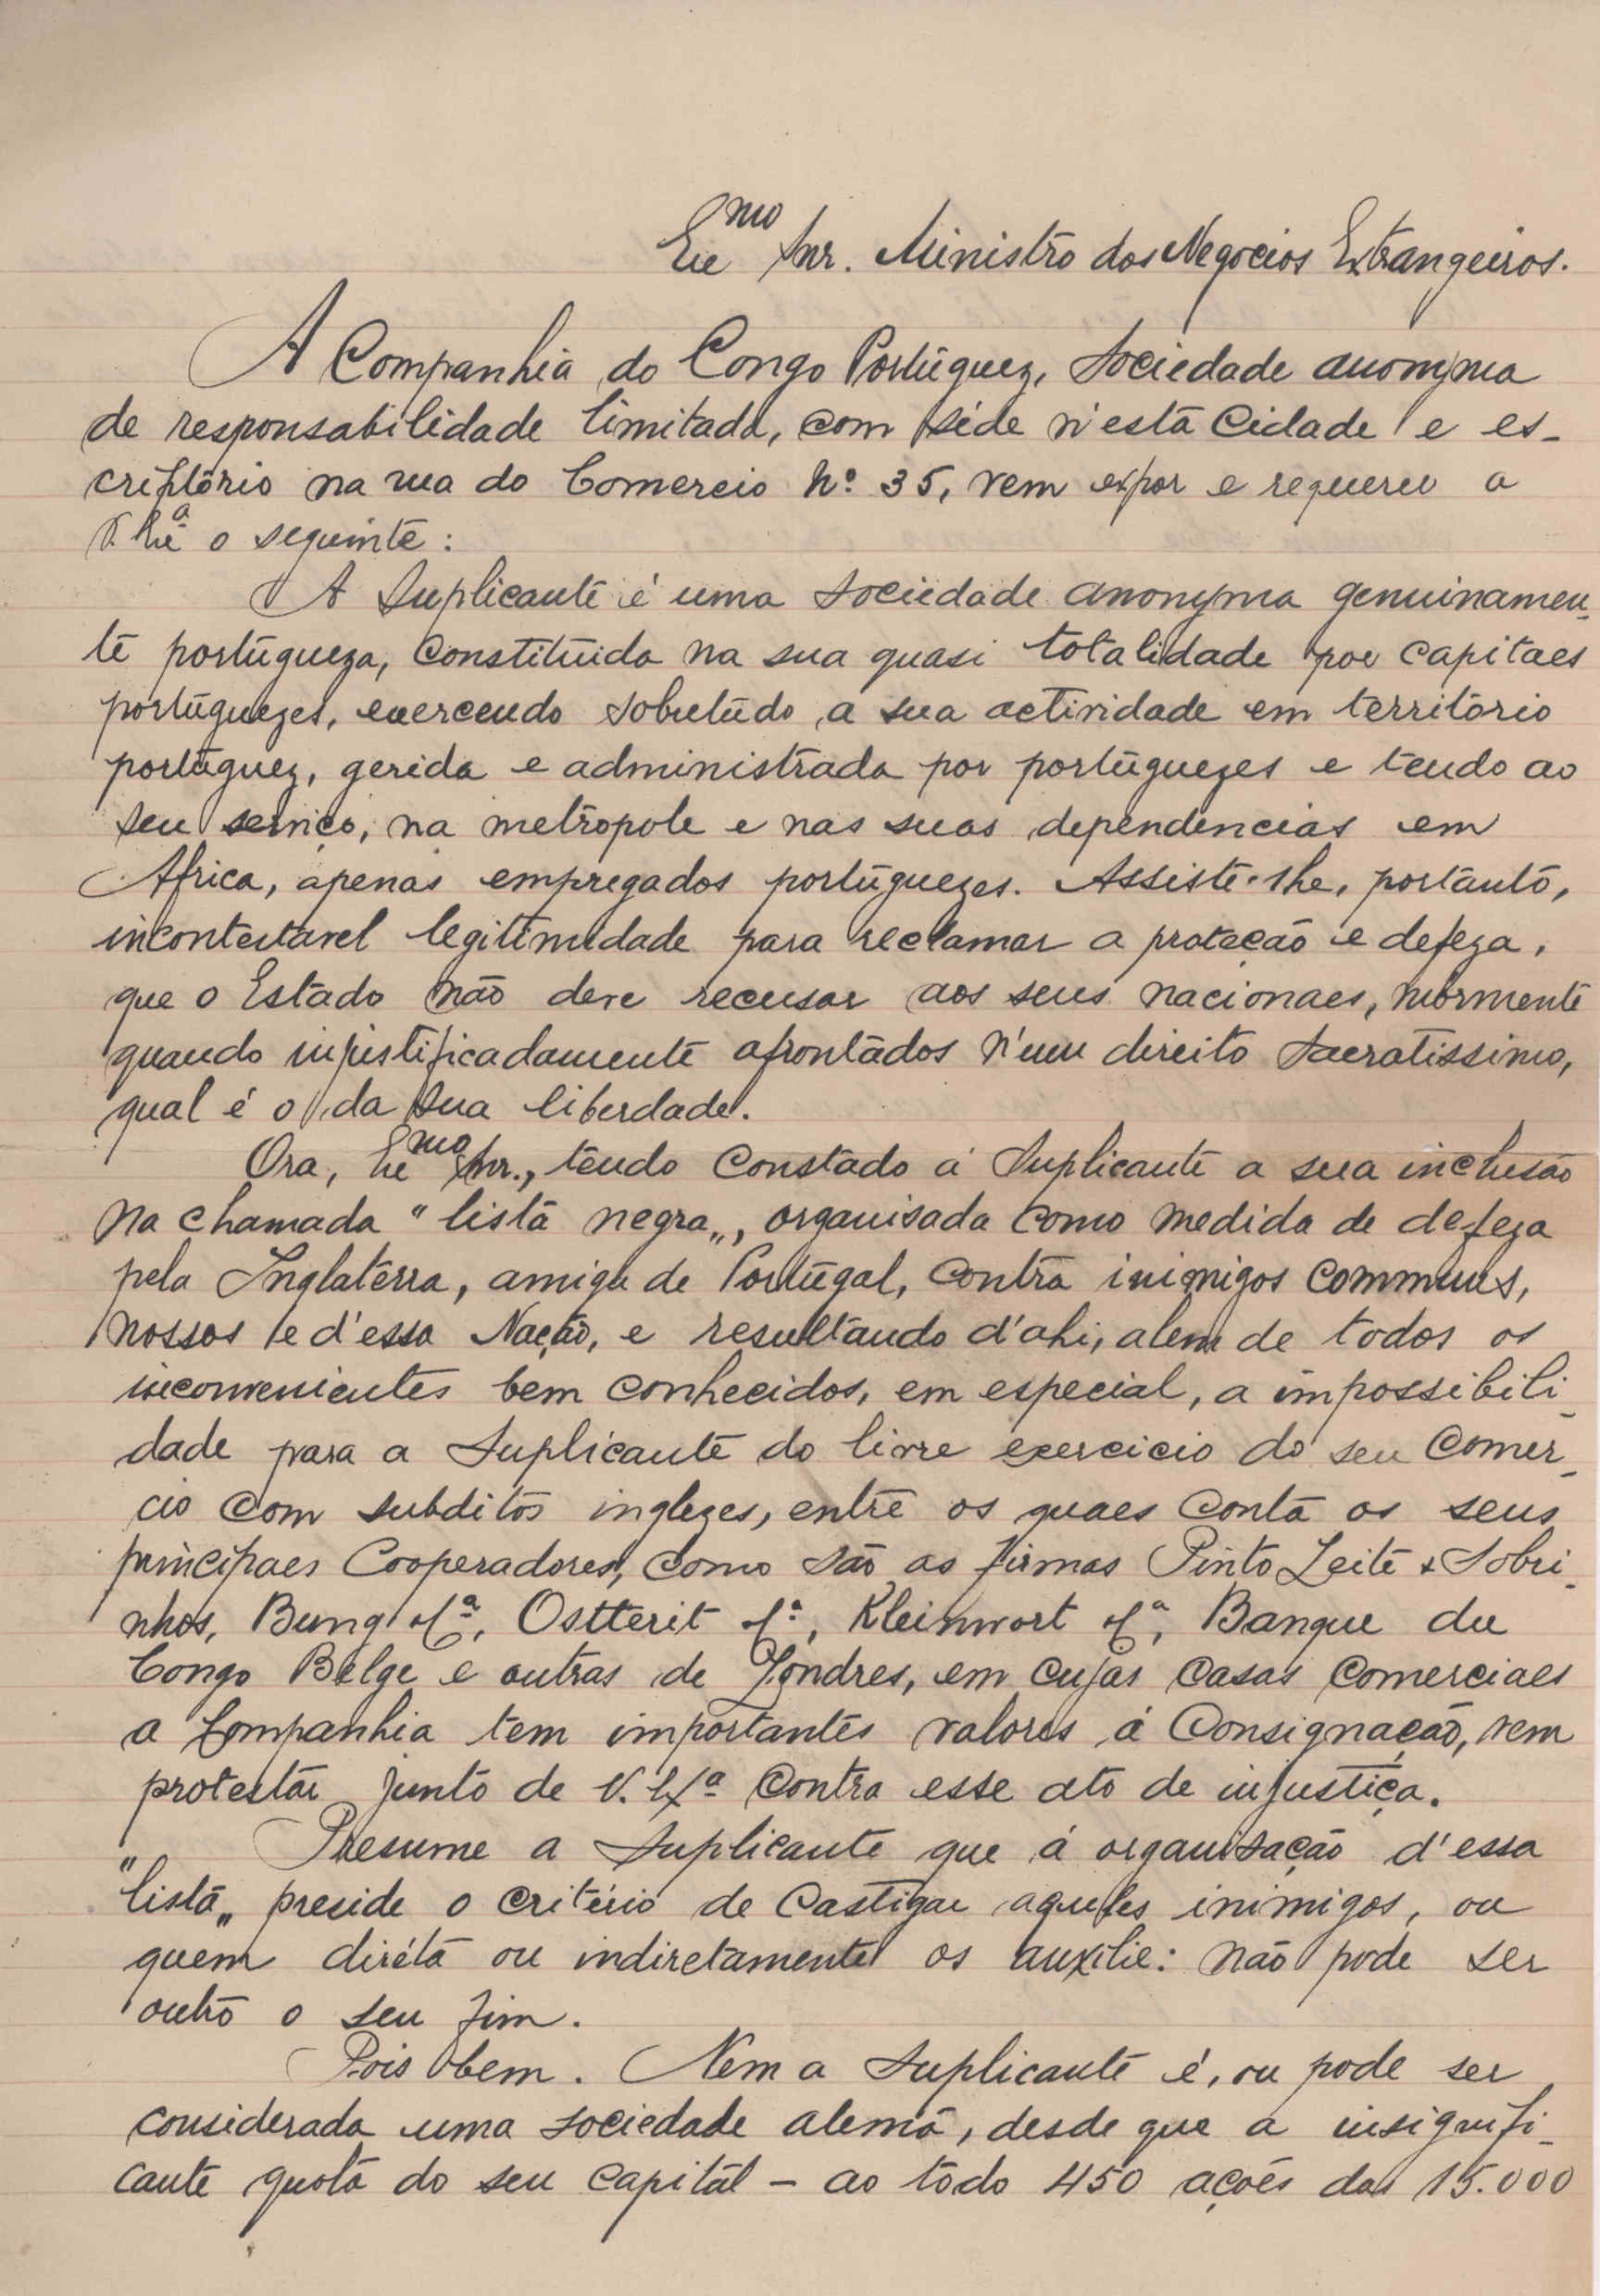 Exmo Snr. Ministro dos Negocios Extrangeiros.
A Companhia do Congo Portuguez, Sociedade anonyma
de responsabilidade limitada, com séde n'esta Cidade e es-
criptório na rua do Comercio Nº 35, vem expor e requerer a
V. Exª o seguinte:
A Suplicante é uma Sociedade anonyma genuinamen-
te portugueza, constituida na sua quasi totalidade por capitaes
portuguezes, exercendo sobretudo a sua actividade em território
portuguez, gerida e administrada por portuguezes e tendo ao
seu serviço, na metropole e nas suas dependencias em
Africa, apenas empregados portuguezes. Assiste-lhe, portanto,
incontestavel legitimidade para reclamar a proteção e defeza,
que o Estado não deve recusar aos seus nacionaes, mórmente
quando injustificadamente afrontados n'um direito sacratissimo,
qual é o da sua liberdade.
Ora, Exmo Snr., tendo constado á Suplicante a sua inclusão
na chamada "lista negra„, organisada como medida de defeza
pela Inglaterra, amiga de Portugal, contra inimigos communs,
nossos e d'essa Nação, e resultando d'ahi, alem de todos os
inconvenientes bem conhecidos, em especial, a impossibili-
dade para a Suplicante do livre exercicio do seu Comer-
cio com subditos inglezes, entre os quaes conta os seus
principaes Cooperadores, como são as firmas Pinto Leite & Sobri-
nhos, Bung & Cª, Ostterit & Cª, Kleinwort & Cª, Banque du
Congo Belge e outras de Londres, em cujas casas comerciaes
a Companhia tem importantes valores á Consignação, vem
protestar junto de V. Exª contra esse ato de injustiça.
Presume a Suplicante que á organisação d'essa
"lista„ preside o critério de castigar aqueles inimigos, ou
quem diréta ou indiretamente os auxilie: não pode ser
outro o seu fim.
Pois bem. Nem a Suplicante é, ou pode ser
considerada uma sociedade alemã, desde que a insignifi-
cante quota do seu capital - ao todo 450 ações das 15.000